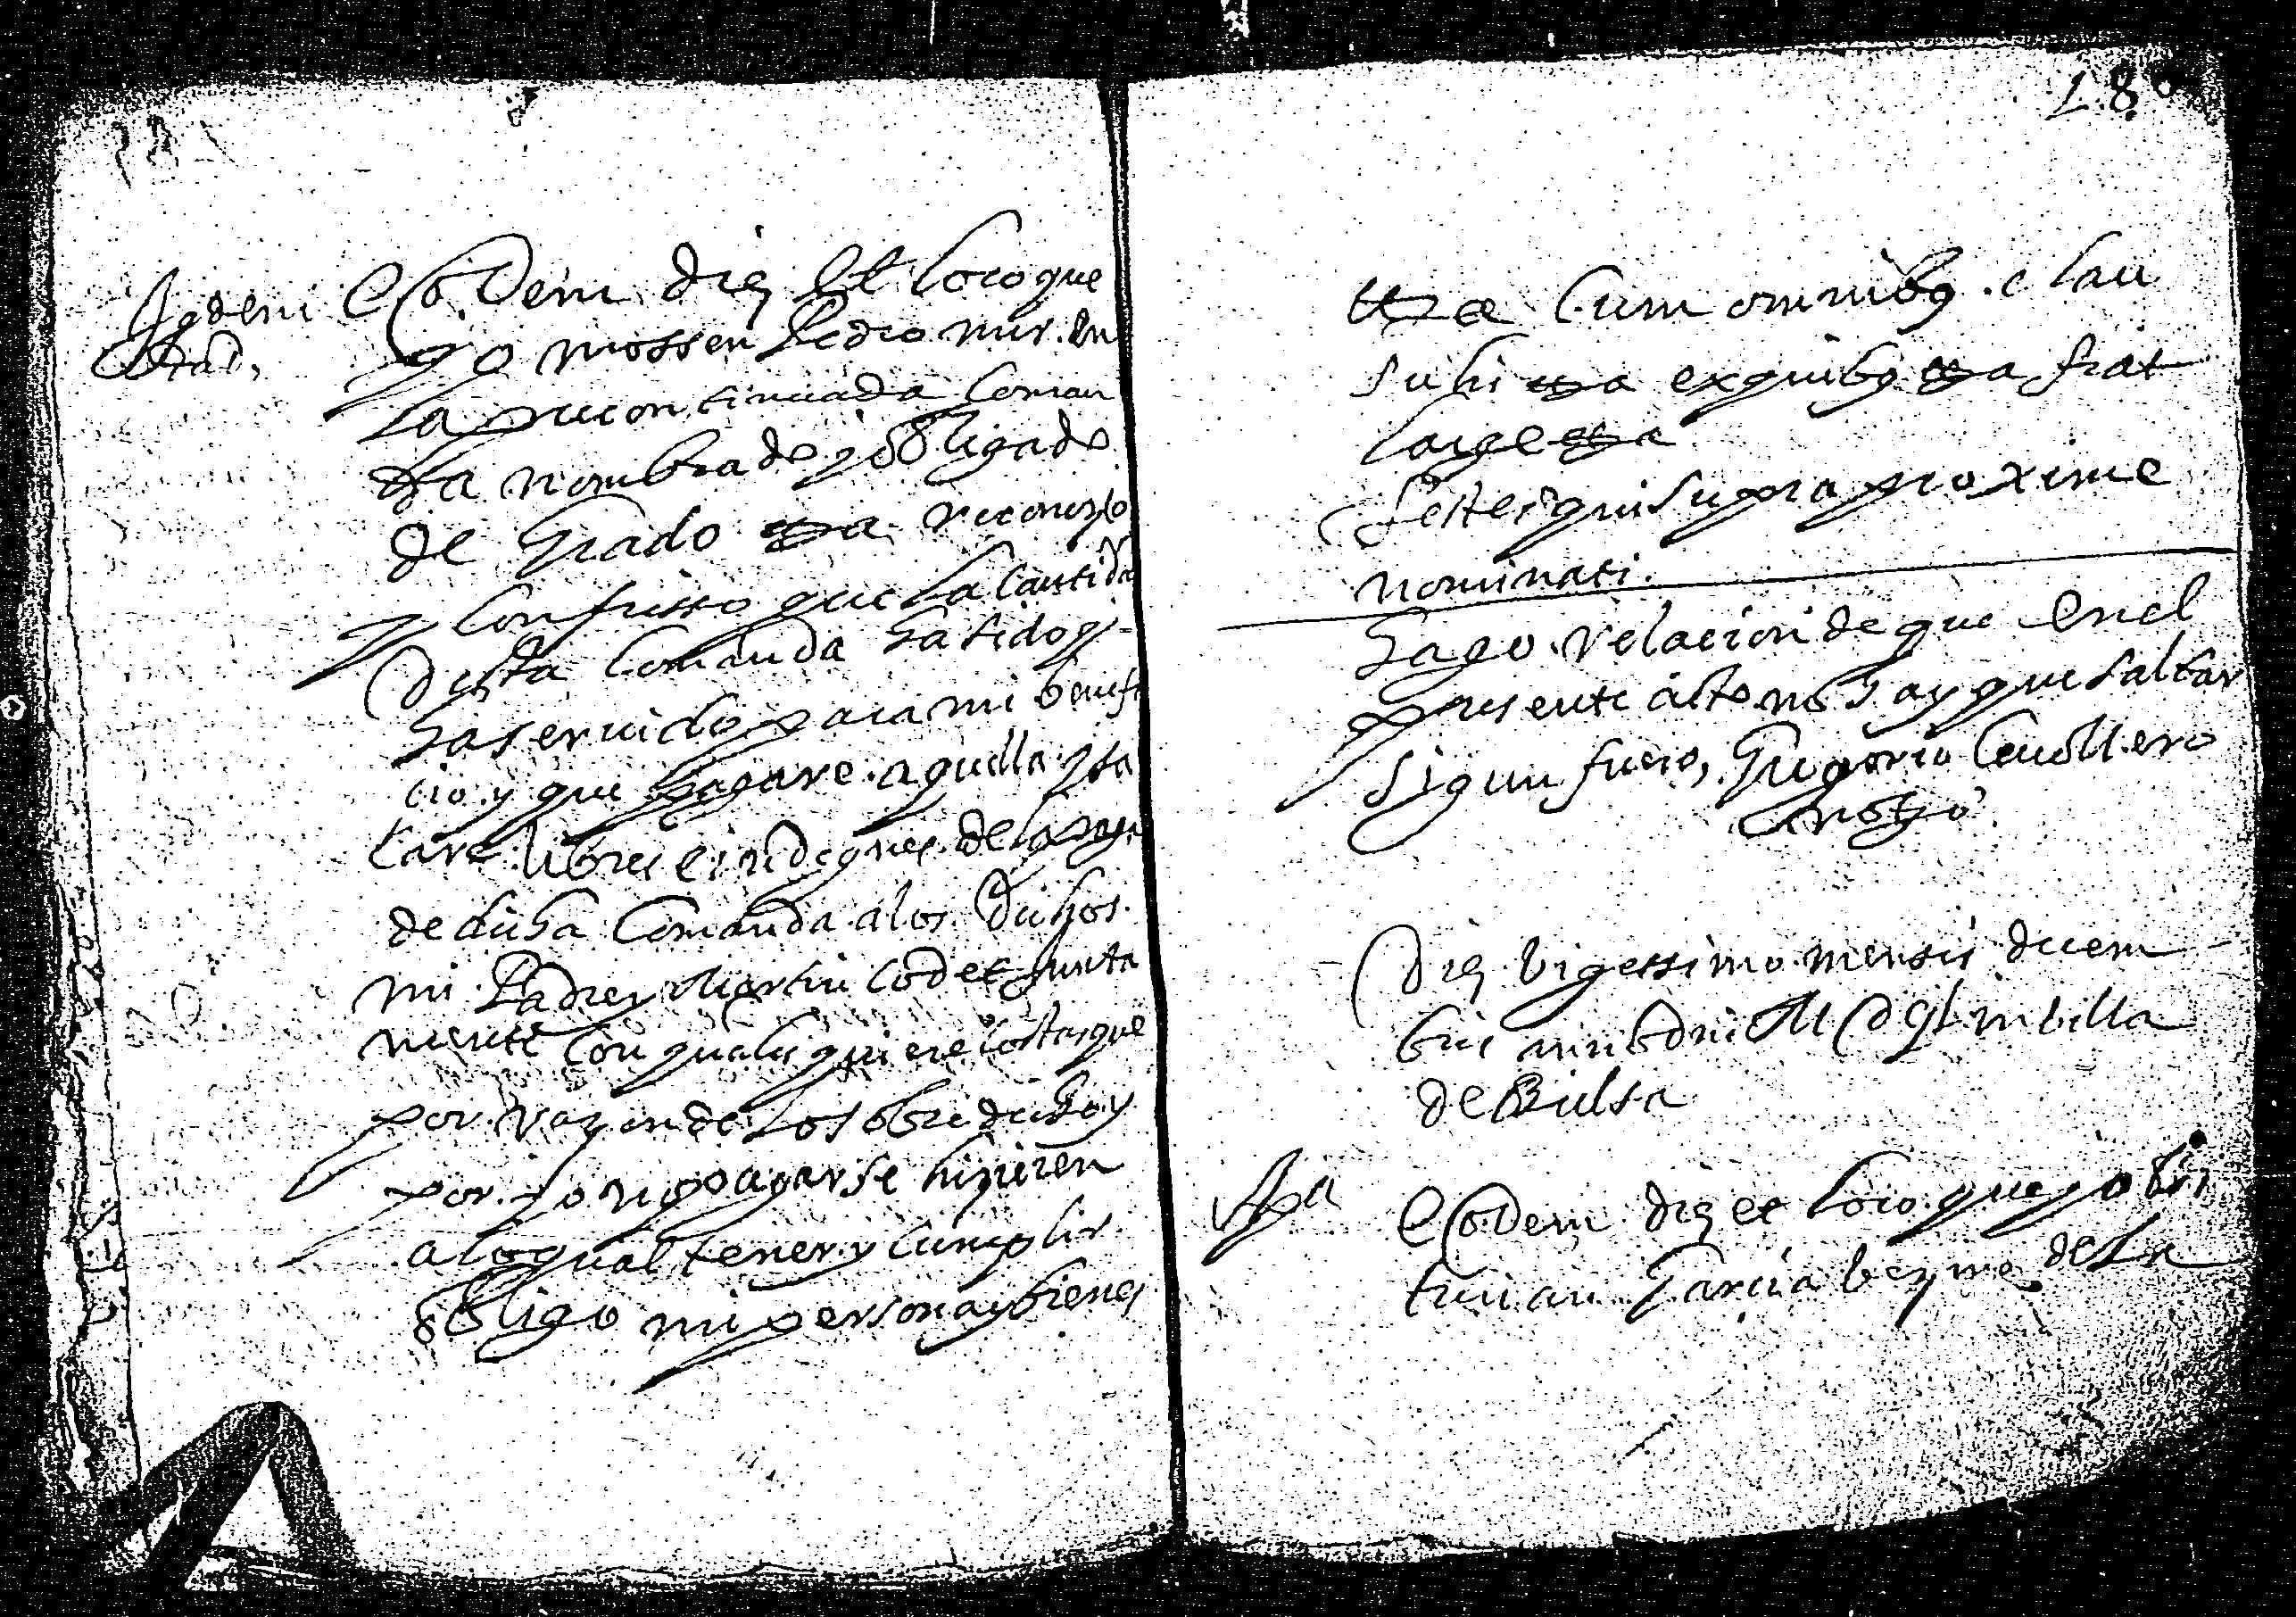 Indem
nitad,
Eodem die et loco que
yo mossen Pedro mir. en
la precontinuada Coman
da nombrado y obligado
de Grado etta reconozco
y Confiesso que la Cantidad
desta Comanda ha sido y
ha servido para mi benefi
cio y que pagare aquella y sa
care libres e indegnes de la paga
de dicha Comanda a los dichos
mi Padre y Martin Codet junta
mente con qualesquiere costas que
por razon de lo sobredicho y
por yo no pagar se hizieren
a lo qual tener y cumplir
obligo mi persona y bienes
180
etta Cum omnibus clau
sulis etta ex quibus etta fiat
large etta
testes qui supra proxime
nominati.
hago relacion de que en el
presente acto no hay que saltar
sigun fuero, Gregorio Cavallero
notro
Die vigessimo mensis decem
bris anno Dni M DC L in villa
de Bielsa
Apa
Eodem die et loco que yo
Garcia de la